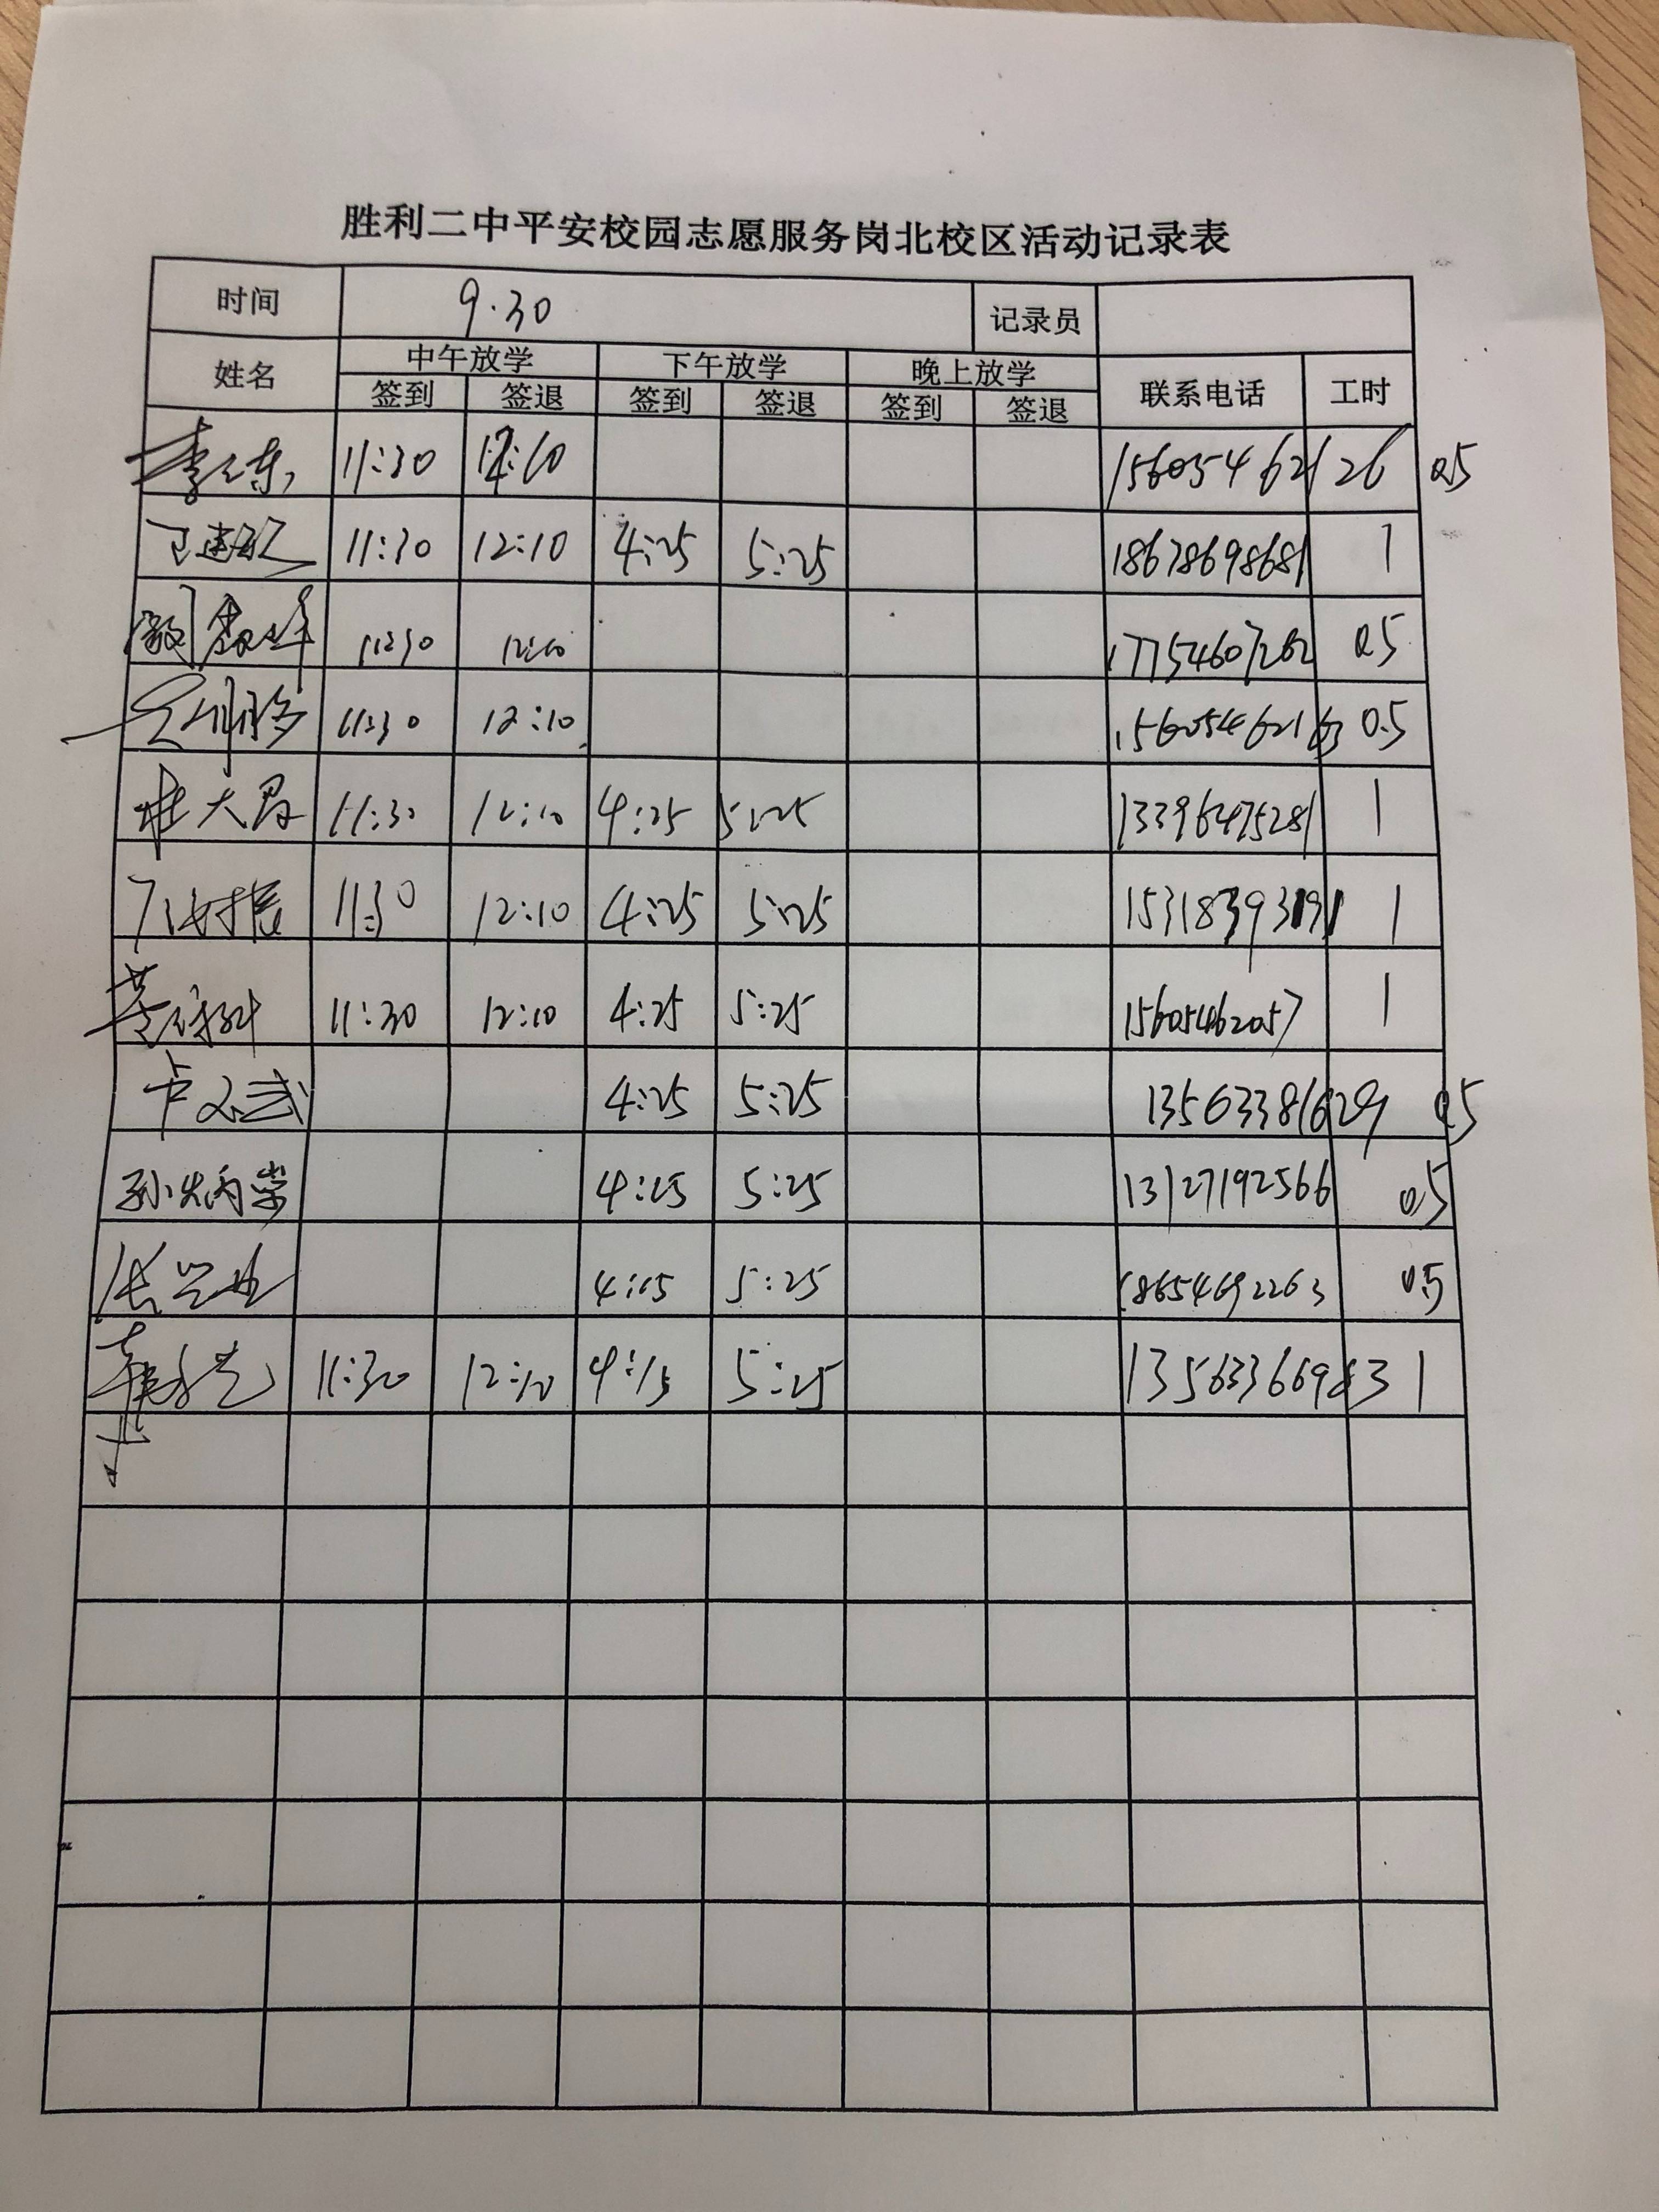 胜利二中平安校园志愿服务岗北校区活动记录表
时间 9.30 记录员
姓名 中午放学 下午放学 晚上放学 联系电话 工时
签到 签退 签到 签退 签到 签退
11:30 12:10 15605462126 0.5
11:30 12:10 4:25 5:25 18678698681 1
11:30 12:10 17754607262 0.5
11:30 12:10 15605462163 0.5
杜大君 11:30 12:10 4:25 5:25 13396475281 1
11:30 12:10 4:25 5:25 15318393191 1
11:30 12:10 4:25 5:25 15605462057 1
卞文武 4:25 5:25 13563381629 0.5
孙炳常 4:25 5:25 13127192566 0.5
张兴业 4:15 5:25 18654692263 0.5
11:30 12:10 4:15 5:25 13563366983 1